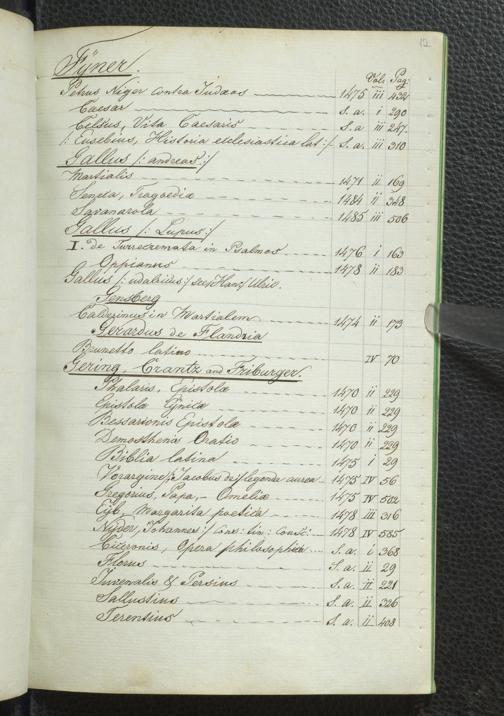 12
Fÿner.
Vol: Pag:
Petrus Niger contra Iudæos 1475 iii 432
Caesar S. a. i 290
Celsus, Vita Caesaris S. a iii 247.
/: Eusebius, Historia ecclesiastica lat:/ S. a. iii 310
Gallus /: andreas:/
Martialis 1471 ii 169
Seneca, Tragœdiæ 1484 ii 348
Savanarola 1485 iii 506
Gallus /: Lupus:/
I. de Turrecremata in Psalmos 1476 i 163
Oppianus 1478 ii 183
Gallus /: udalricus:/ see Han/ Ulric.
Gensberg
Calderinus in Martialem 1474 ii 173
Gerardus de Flandria
Brunetto latino IV 70
Gering, Crantz and Friburger.
Phalaris, Epistolæ 1470 ii 229
Epistolæ Cynicæ 1470 ii 229
Bessarionis Epistolæ 1470 ii 229
Demosthenis Oratio 1470 ii 229
Biblia latina 1475 i 29
Voragine/: Jacobus de:/ legenda aurea 1475 IV 56
Gregorius, Papa, Omeliæ 1475 IV 502
Eÿb, Margarita poetica 1478 iii 316
Nÿder, Johannes:/ Cons: tim: consc: 1478 IV 585
Ciceronis, Opera philosophica S. a. i 368
Florus S. a. ii 29
Iuvenalis & Persius S. a. ii 221
Sallustius S. a. ii 326
Terentius S. a. ii 408